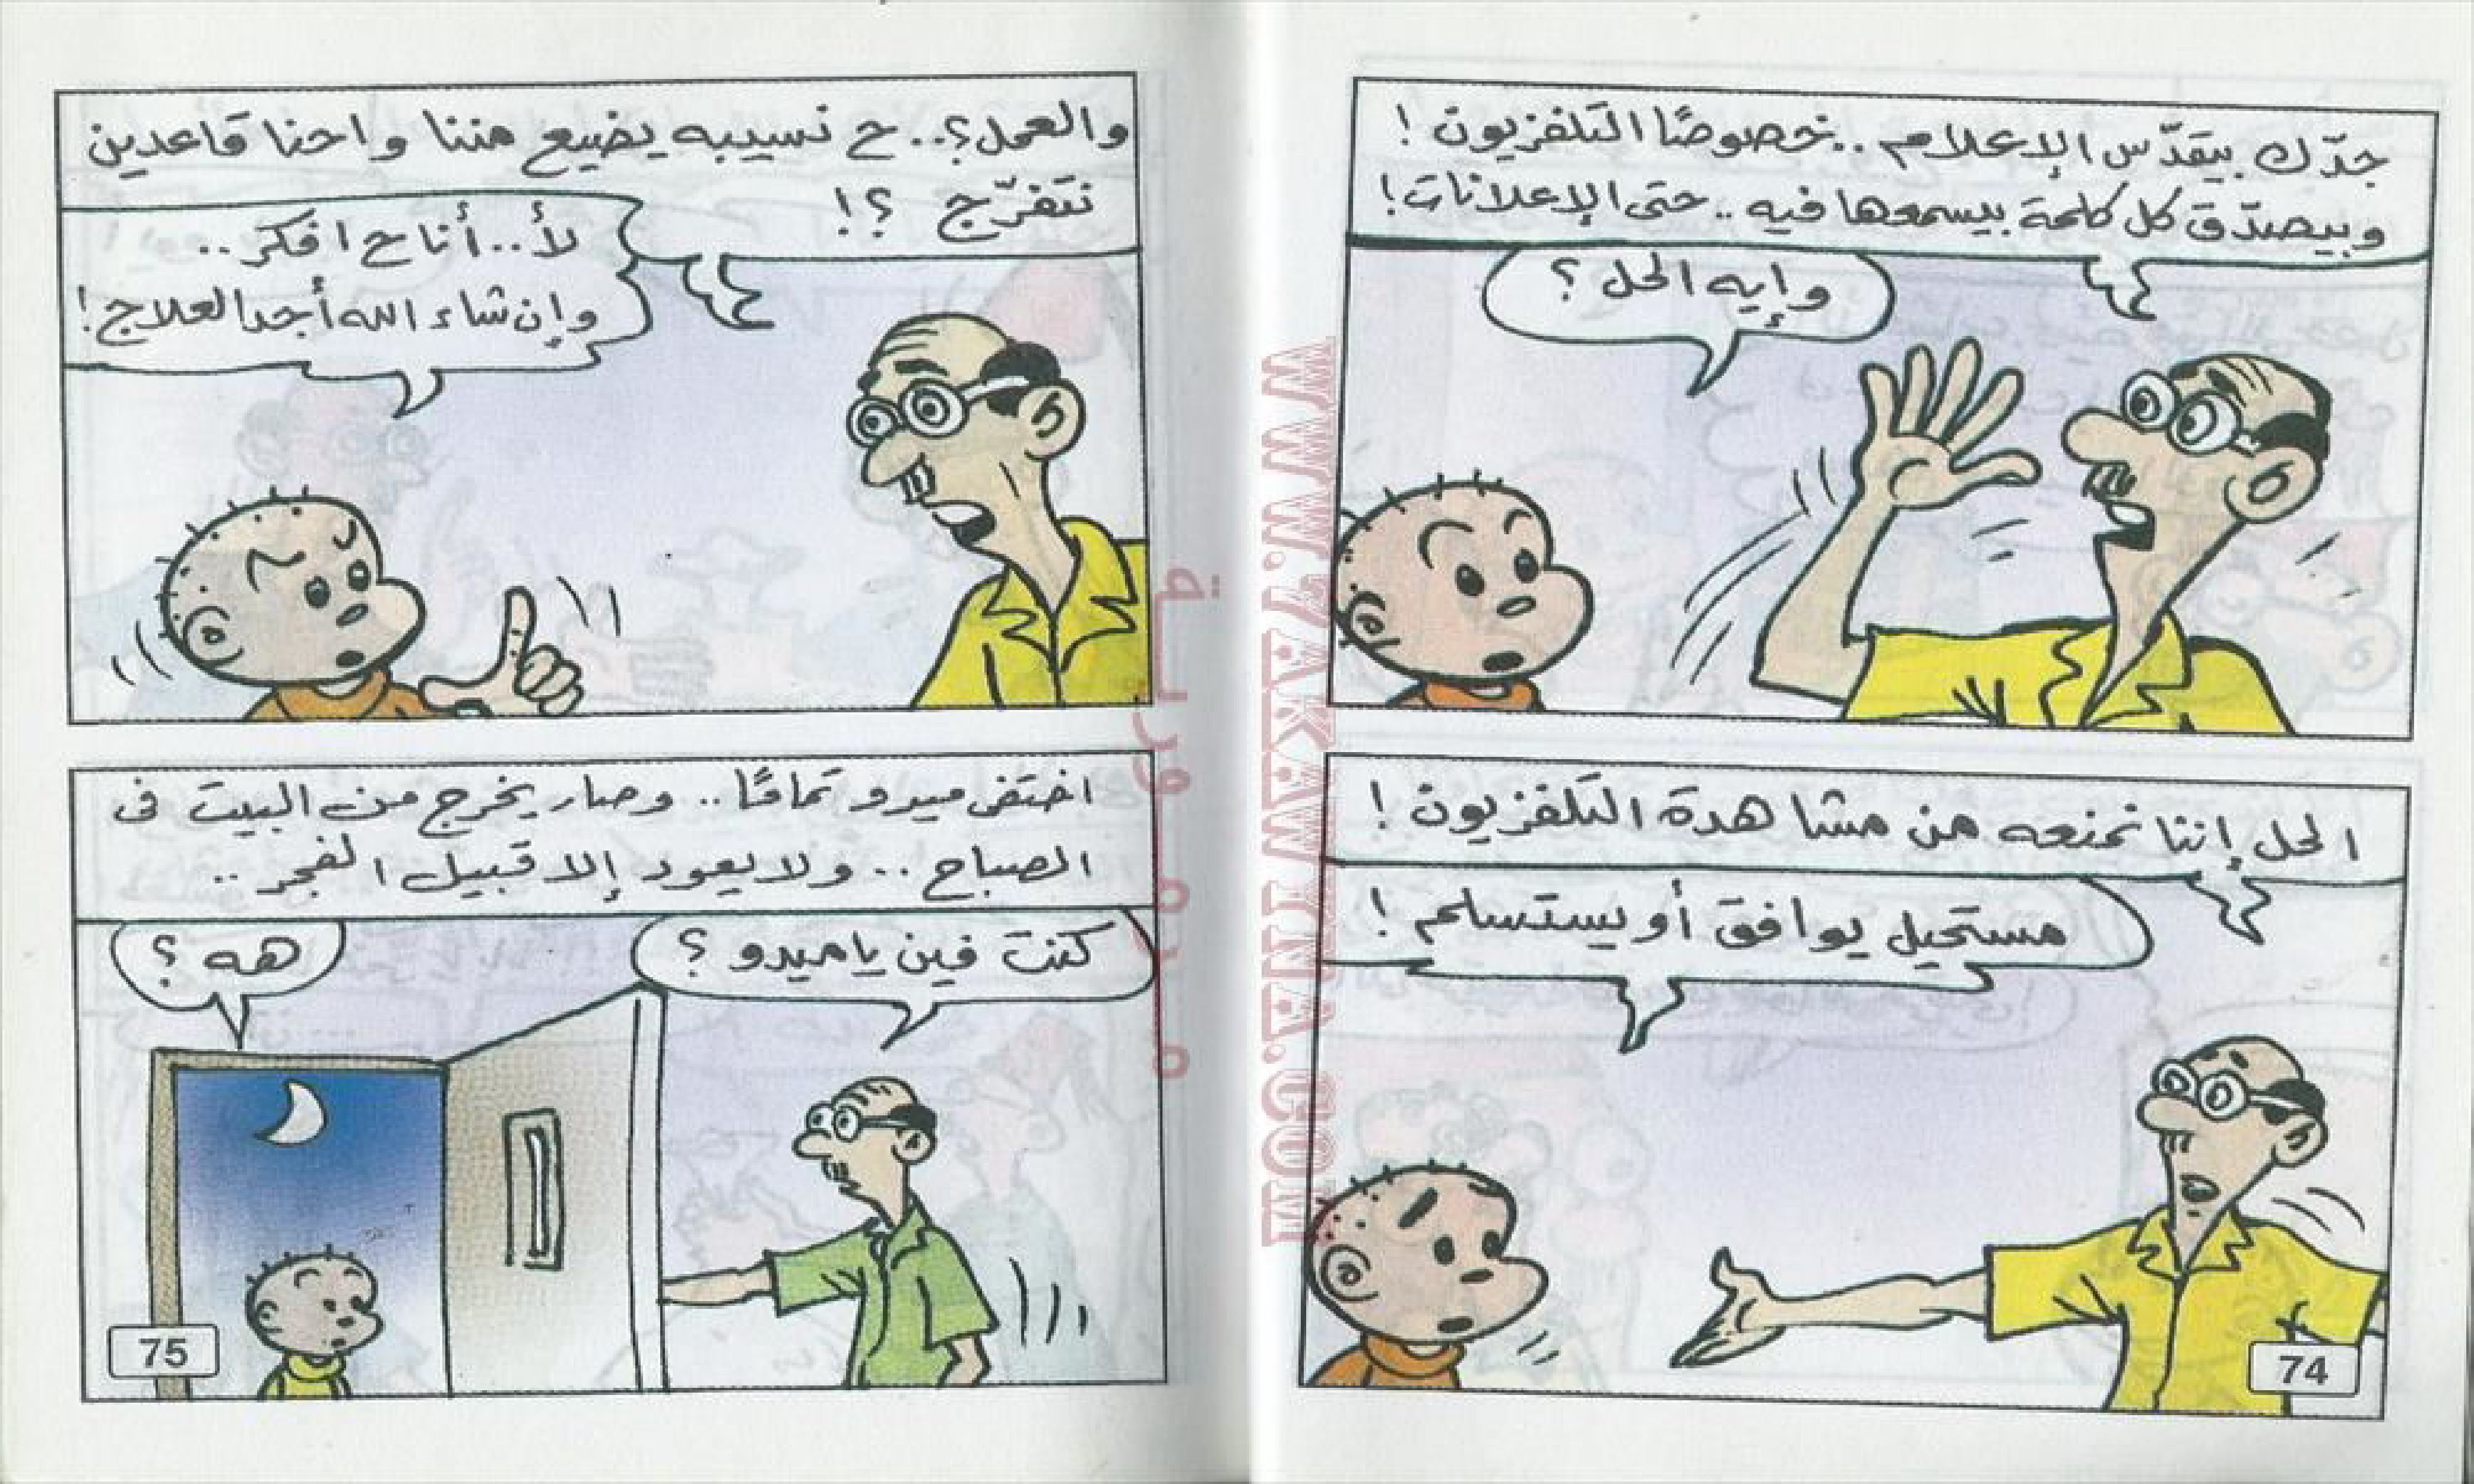 جدّك بيقدّس الإعلام.. خصوصًا التلفزيون!
وبيصدّق كل كلمة بيسمعها فيه.. حتى الإعلانات!
وإيه الحل؟
الحل إننا نمنعه من مشاهدة التلفزيون!
مستحيل يوافق أو يستسلم!
74
والعمل؟.. ح نسيبه يضيع مننا واحنا قاعدين
نتفرّج ؟!
لأ.. أنا ح افكر..
وإن شاء الله أجد العلاج!
اختفى ميدو تمامًا.. وصار يخرج من البيت فى
الصباح.. ولا يعود إلا قبيل الفجر..
كنت فين يا ميدو؟
هه؟
75
WWW.7AKAWLINA.COM